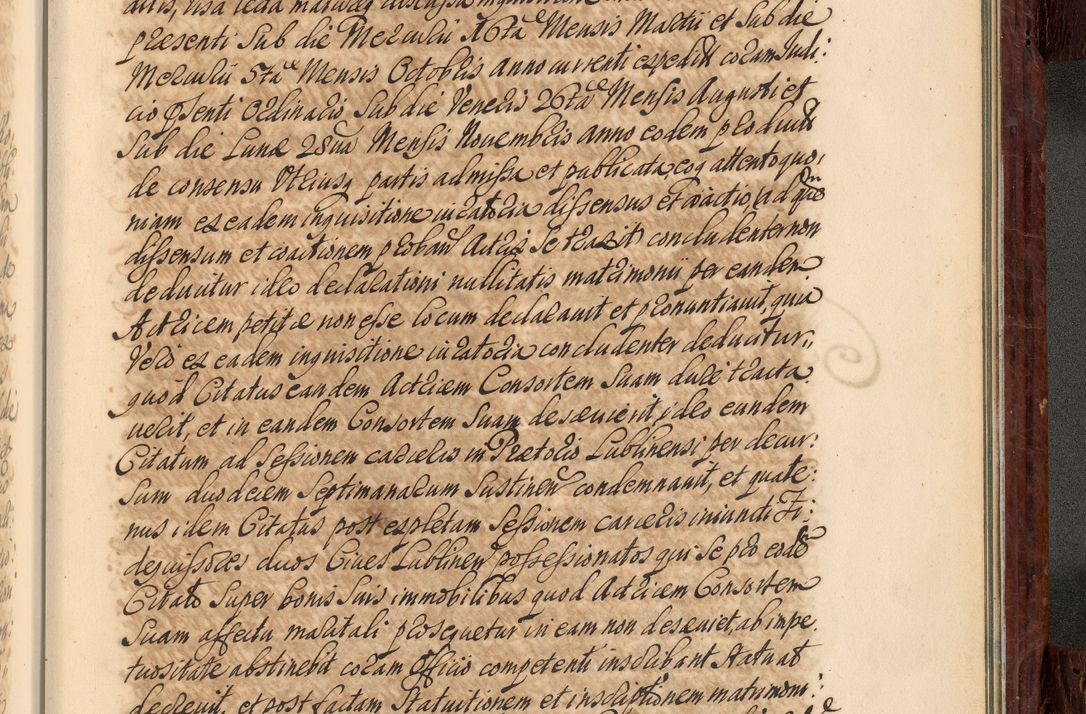 præsenti Sub die Mercurii 16ta Mensis Martii et Sub die
Mercurii 5ta Mensis Octobris anno currenti expedit coram Judi:
cio Psenti Ordinario, Sub die Veneris 26ta Mensis Augusti et
Sub die Lunæ 28va Mensis Novembris anno eodem product
de consensu Utriusq partis admissa et publicata, eoq attento quo:
niam ex eadem inquisitione iuratoria dissensus et coactio, ad quæ
dissensum et coactionem proband Actrix Se traxit concludenter non
deducitur ideo declarationi nullitatis matrimonij per eandem
Actricem petitæ non esse locum declaravit et pronuntiavit, quia
Vero ex eadem inquisitione iuratoria concludenter deducitur,
quod Citatus eandem Actricem Consortem Suam dure tracta
verit, et in eandem Consortem Suam desævierit, ideo eundem
Citatum ad Sessionem carceris in Prætorio Lublinensi per decur:
Sum duodecem Septimanarum Sustinen condemnavit, et quate:
nus idem Citatus post expletam Sessionem carceris iniundi Fi:
dejussores duos Cives Lublinen possessionatos qui Se pro eode
Citato Super bonis Suis immobilibus quod Actricem Consortem
Suam affectu maritali prosequetur in eam non desæviet, ab impe
tuositate abstinebit coram Officio competenti inscribant Statuat
decrevit, et post factam Statuitionem et inscriptionem matrimoni: